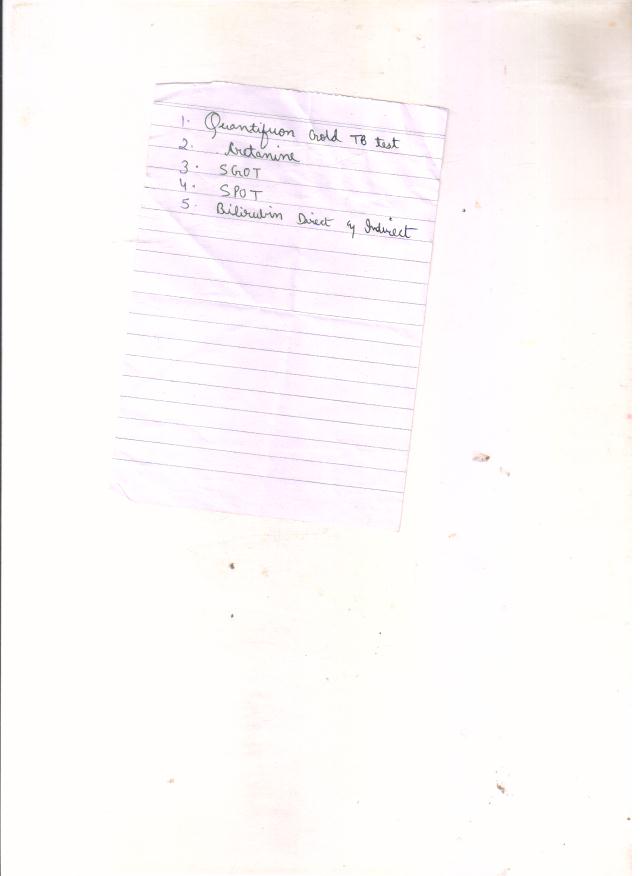 1. Quantifuon Gold TB test
2. Cretanine
3. SGOT
4. SPOT
5. Bilirubin Direct & Indirect